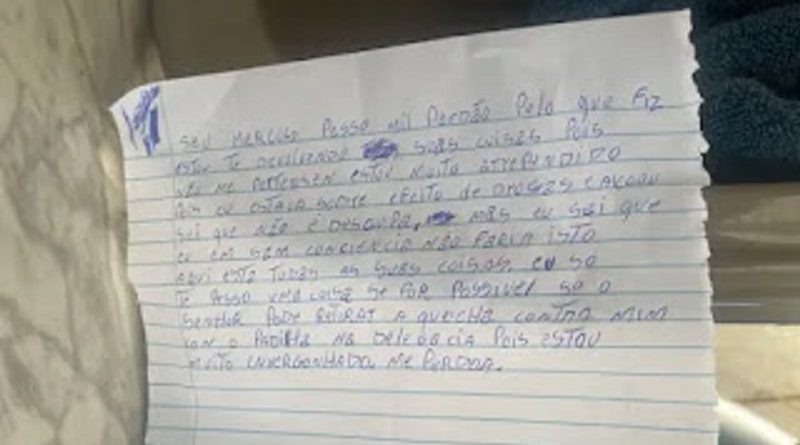 SEU MERCULO PESSO MIL PERDÃO PELO QUE FIZ
ESTOU TE DEVOLVENDO SUAS COISAS POIS
NÃO ME PERTENSEN ESTOU MUITO ARREPENDIDO
POIS EU ESTAVA SOBRE EFEITO DE DROGAS E ALCOOU
SEI QUE NÃO É DESCUPA, MAS EU SEI QUE
EU EM SAM CONCIENCIA NÃO FARIA ISTO
AQUI ESTA TODAS AS SUAS COISAS. EU SO
TE PESSO UMA COISA SE FOR POSSIVEL SO O
SENHOR PODE RETIRAR A QUEICHA CONTRA MIM
COM O PADILHA NA DELEGACIA POIS ESTOU
MUITO ENVERGONHADO. ME PERDOA.